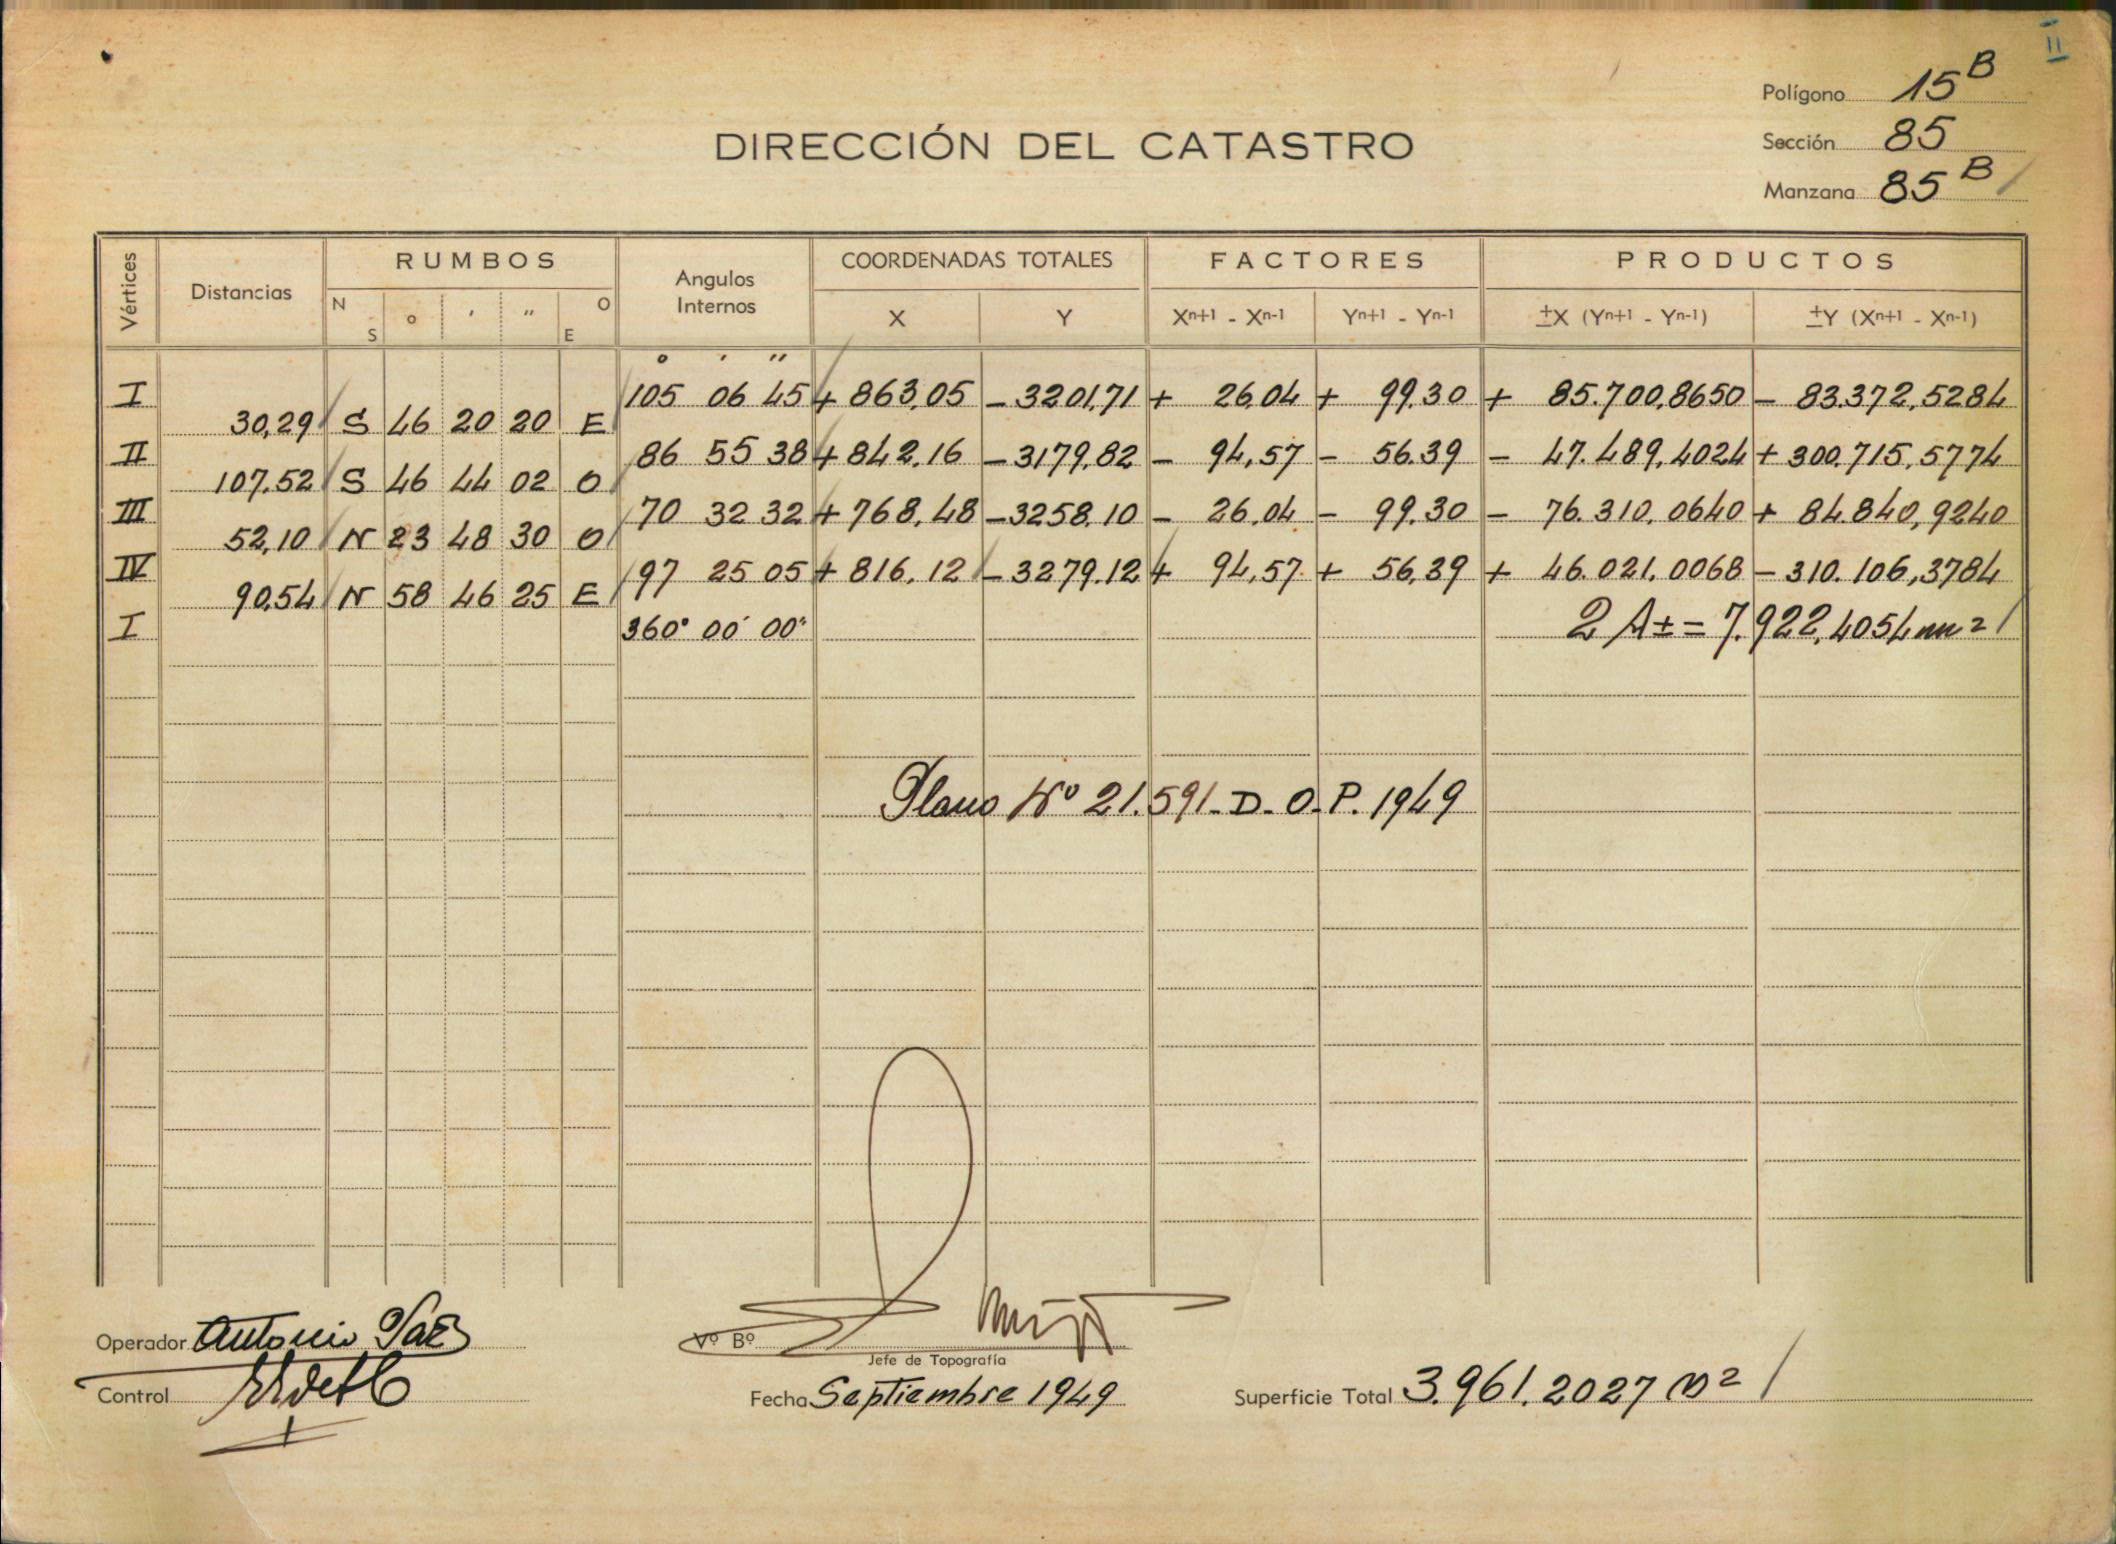 II
Polígono 15 B
DIRECCIÓN DEL CATASTRO
Sección 85
Manzana 85 B
Vértices Distancias RUMBOS Angulos Internos COORDENADAS TOTALES FACTORES PRODUCTOS
N S ° ' " O E X Y Xn+1 - Xn-1 Yn+1 - Yn-1 ±X (Yn+1 - Yn-1) ±Y (Xn+1 - Xn-1)
° ' "
I 105 06 45 + 863,05 - 3201,71 + 26,04 + 99.30 + 85.700,8650 - 83.372,5284
30,29 S 46 20 20 E
II 86 55 38 + 842.16 - 3179,82 - 94,57 - 56.39 - 47.489,4024 + 300.715,5774
107,52 S 46 44 02 O
III 70 32 32 + 768,48 - 3258.10 - 26,04 - 99.30 - 76.310,0640 + 84.840,9240
52,10 N 23 48 30 O
IV 97 25 05 + 816,12 - 3279.12 + 94,57 + 56,39 + 46.021,0068 - 310.106,3784
90,54 N 58 46 25 E
I 360° 00' 00" 2 A ± = 7.922,4054 m²
Plano Nº 21.591-D-O-P. 1949
Operador Antonio Páez
Vº Bº
Jefe de Topografía
Control
Fecha Septiembre 1949
Superficie Total 3.961.2027 m²